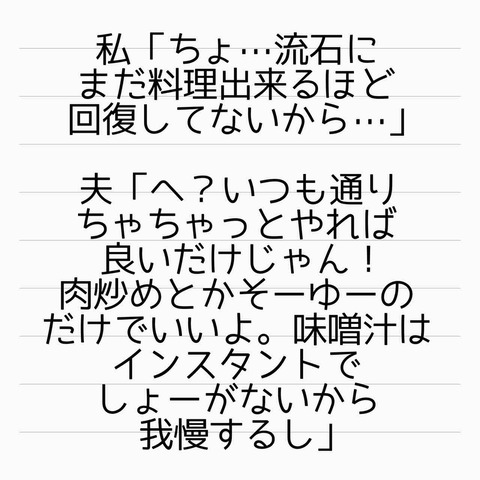 私「ちょ…流石に
まだ料理出来るほど
回復してないから…」
夫「へ？いつも通り
ちゃちゃっとやれば
良いだけじゃん！
肉炒めとかそーゆーの
だけでいいよ。味噌汁は
インスタントで
しょーがないから
我慢するし」